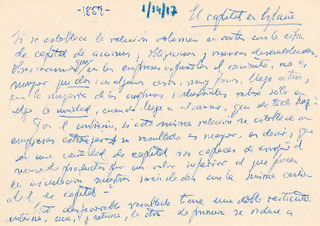 -1859-
1/24/47
El capital en España
Si se establece la relación volumen en ventas con la cifra
de capital de acciones, obligaciones y reservas desembolsadas,
observaremos que en las empresas españolas el cociente, no es
mayor que dos en algunos casos, muy pocos, llega a tres,
pero la mayoría de las empresas industriales rebasa sólo en
algo la unidad, cuando llega a alcanzar, que de todo hay.
Por el contrario, si esta misma relación se establece en
empresas extranjeras su resultado es mayor, es decir, que
con una cantidad de capital son capaces de arrojar al
mercado productos por un valor superior al que ponen
en circulación nuestras sociedades con la misma canti-
dad de capital.
Este desfavorable resultado tiene una doble vertiente:
interna, una, y externa, la otra. La primera se reduce a